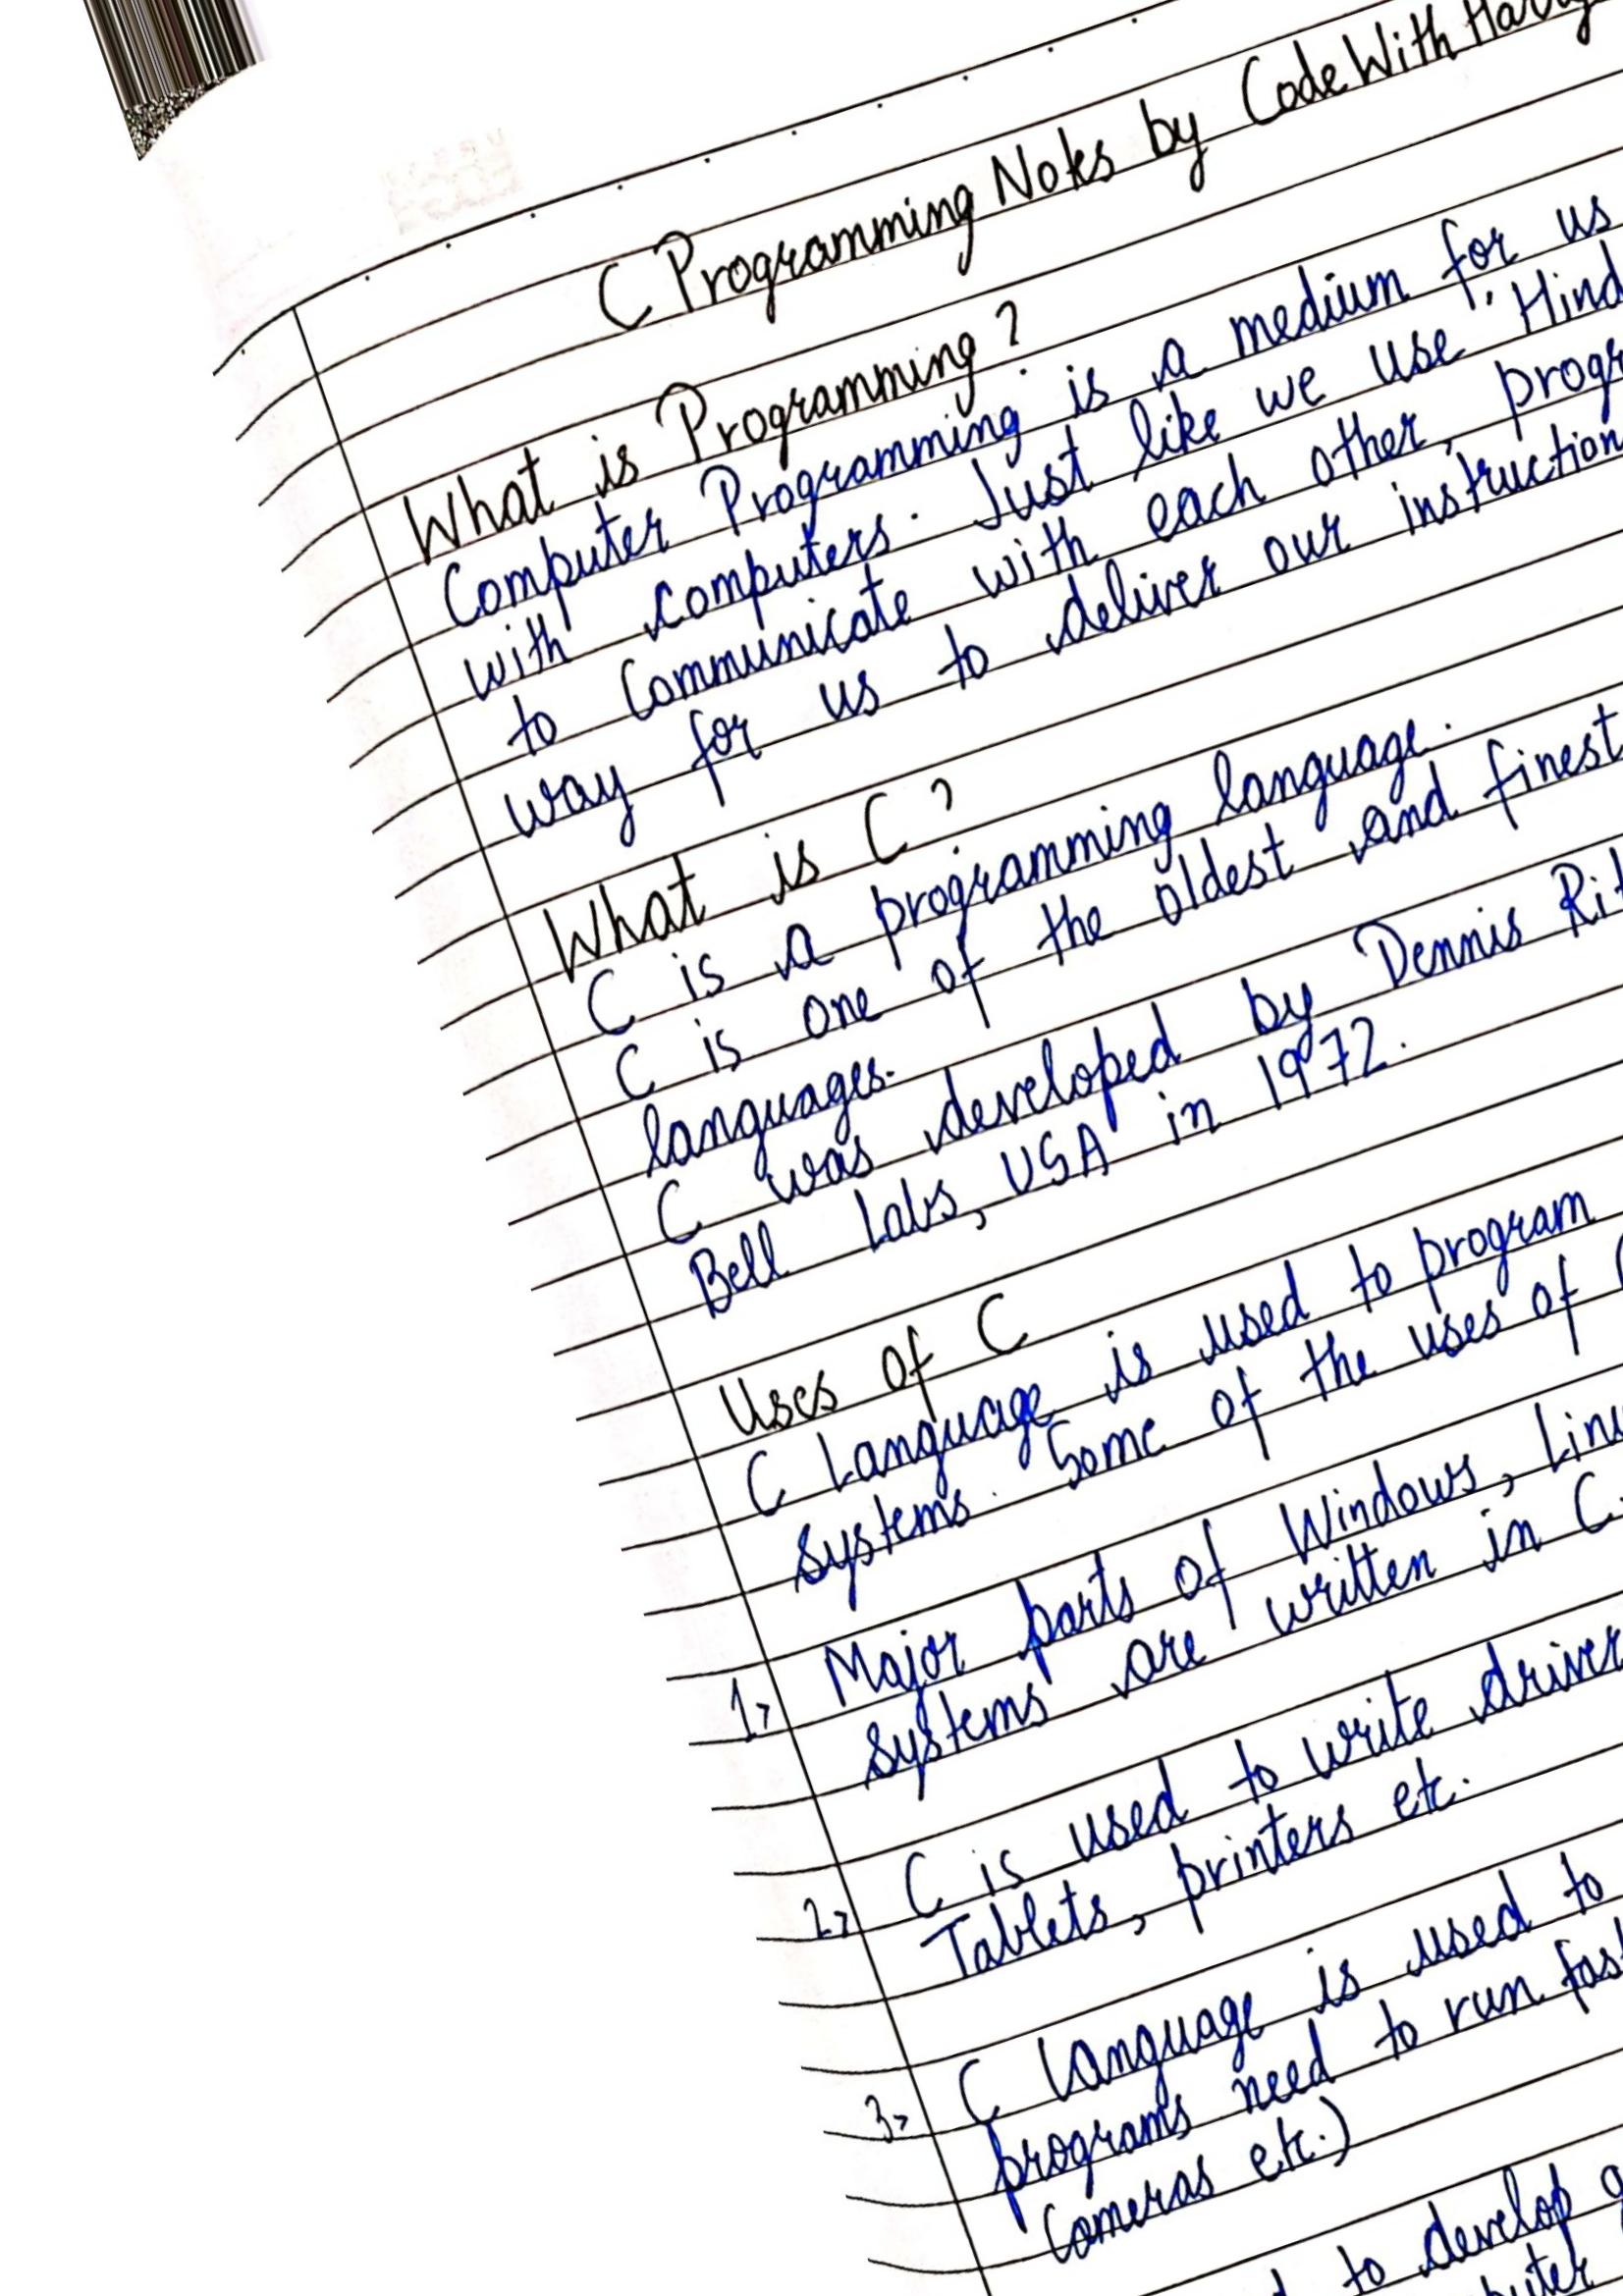 C Programming Notes by CodeWithHarry
What is Programming?
Computer Programming is a medium for us
with computers. Just like we use "Hind
to Communicate with each other, progr
way for us to deliver our instruction
What is C?
C is a programming language.
C is one of the oldest and finest
languages.
C was developed by Dennis Rit
Bell Labs, USA in 1972.
Uses of C
C Language is used to program
systems. Some of the uses of
1> Major parts of Windows, Linu
systems are written in C.
2> C is used to write driver
Tablets, printers etc.
3> C language is used to
programs need to run fas
Cameras etc.)
to develop g